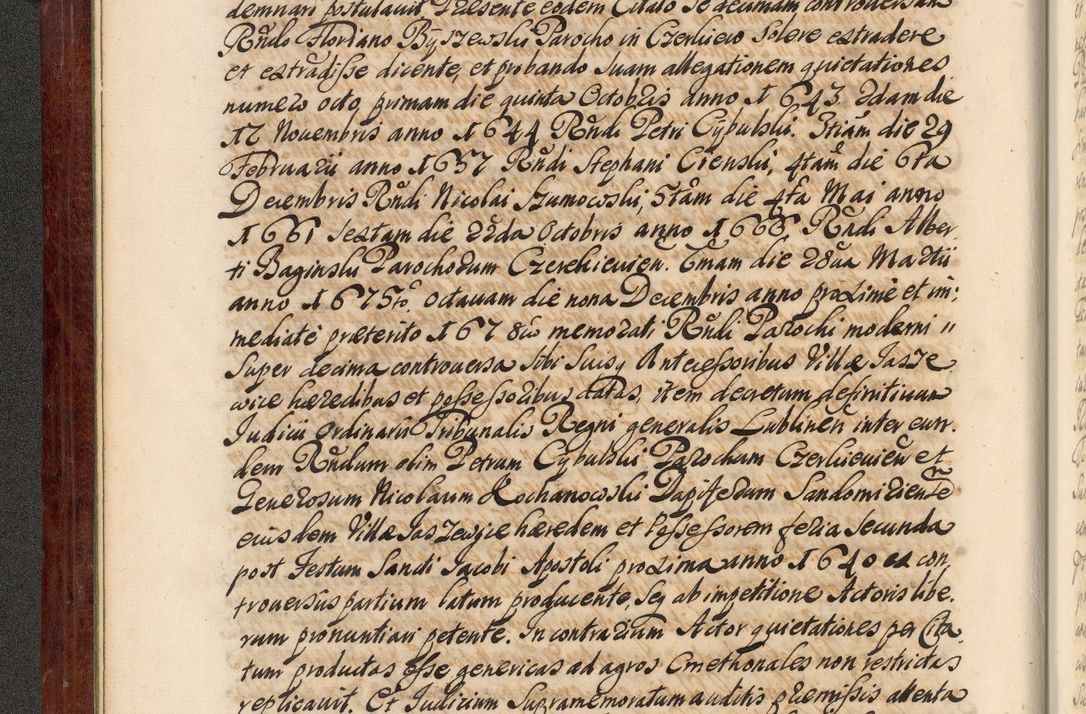 demnari postulavit Praesente eodem Citato se decimam controversam
Rndo Floriano Byszewski Parocho in Czerluewo Solere extradere
et extradisse dicente, et probando suam allegationem quietationes
numero octo, primam die quinta Octobris anno 1643. 2dam die
17 Nouembris anno 1644 Rndi Petri Cybulski. 3tiam die 29
Februarii anno 1657 Rndi Stephani Cienski, 4tam die 6ta
Decembris Rndi Nicolai Szumowski, 5tam die 4ta Mai anno
1661 Sextam die 22da Octobris anno 1668 Rndi Alber-
ti Baginski Parochorum Czerekievien. 7mam die 28ua Martii
anno 1675to octauam die nona Decembris anno proxime et im:
mediate praeterito 1678uo memorati Rndi Parochi moderni "
Super decima controuersa sibi suisq Antecessoribus Villae Jasze
wice haeredibus et possessoribus datas, item decretum definitiuum
Judicii ordinarii Tribunalis Regni generalis Lublinen inter eun.
dem Rndum olim Petrum Cybulski Parochum Czerkieuien et
Generosum Nicolaum Kochanowski Dapiferum Sandomiriense
eiusdem Villae Jaszewice haeredem et Possessorem feria Secunda
post Festum Sancti Jacobi Apostoli proxima anno 1640 ex con
trouersiis partium latum producente, Seq ab impetitione Actoris libe.
rum pronuntiari petente. In contrarium Actor quietationes per Cita
tum productas esse genericas ad agros Cmethonales non restrictas
replicauit. Et Judicium Supramemoratum auditis praemissis attenta